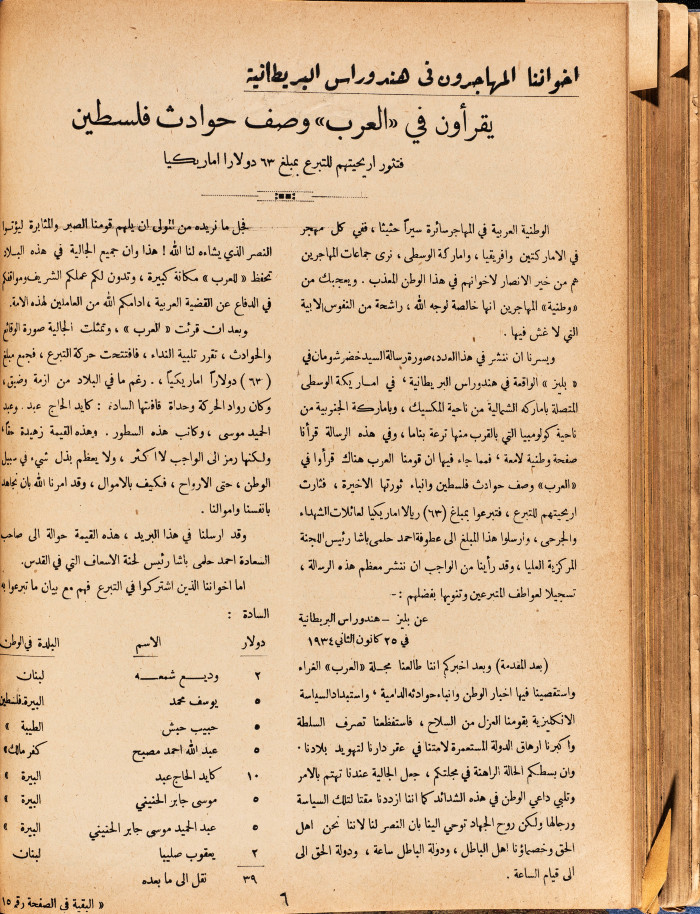 اخواننا المهاجرون فى هندوراس البريطانية
يقرأون في «العرب» وصف حوادث فلسطين
فتثور اريحيتهم للتبرع بمبلغ ٦٣ دولارا اماريكيا
الوطنية العربية في المهاجر سائرة سيراً حثيثا، ففي كل مهجر
في الاماركتين وافريقيا، واماركة الوسطى، نرى جماعات المهاجرين
هم من خير الانصار لاخوانهم في هذا الوطن المعذب. ويعجبك من
«وطنية» المهاجرين انها خالصة لوجه الله، راشحة من النفوس الابية
التي لا غش فيها.
ويسرنا ان ننشر في هذا العدد، صورة رسالة السيد خضر شومان في
« بليز » الواقعة في هندوراس البريطانية، في اماريكة الوسطى
المتصلة باماركه الشمالية من ناحية المكسيك، وباماركة الجنوبية من
ناحية كولومبيا التي بالقرب منها ترعة بناما، وفي هذه الرسالة قرأنا
صفحة وطنية لامعة، فمما جاء فيها ان قومنا العرب هناك قرأوا في
«العرب» وصف حوادث فلسطين وانباء ثورتها الاخيرة، فثارت
اريحيتهم للتبرع، فتبرعوا بمبلغ (٦٣) ريالا اماريكيا لعائلات الشهداء
والجرحى، وارسلوا هذا المبلغ الى عطوفة احمد حلمي باشا رئيس اللجنة
المركزية العليا، وقد رأينا من الواجب ان ننشر معظم هذه الرسالة،
تسجيلا لعواطف المتبرعين وتنويها بفضلهم :-
عن بليز – هندوراس البريطانية
في ٢٥ كانون الثاني ١٩٣٤
(بعد المقدمة) وبعد اخبركم اننا طالعنا مجلة «العرب» الغراء
واستقصينا فيها اخبار الوطن وانباء حوادثه الدامية، واستبداد السياسة
الانكليزية بقومنا العزل من السلاح، فاستفظعنا تصرف السلطة
واكبرنا ارهاق الدولة المستعمرة لامتنا في عقر دارنا لتهويد بلادنا.
وان بسطكم الحالة الراهنة في مجلتكم، جعل الجالية عندنا تهتم بالامر
وتلبي داعي الوطن في هذه الشدائد كما اننا ازددنا مقتا لتلك السياسة
ورجالها ولكن روح الجهاد توحي الينا بان النصر لنا لاننا نحن اهل
الحق وخصماؤنا اهل الباطل، ودولة الباطل ساعة، ودولة الحق الى
الى قيام الساعة.
فجل ما نريده من نتولى ان يلهم قومنا الصبر والمثابرة ليؤتوا
النصر الذي يشاءه لنا الله ! هذا وان جميع الجالية في هذه البلاد
تحفظ «للعرب» مكانة كبيرة، وتدون لكم عملكم الشريف ومواقفكم
في الدفاع عن القضية العربية، ادامكم الله من العاملين لهذه الامة.
وبعد ان قرئت «العرب»، وتمثلت الجالية صورة الوقائع
والحوادث، تقرر تلبية النداء، فافتتحت حركة التبرع، فجمع مبلغ
(٦٣) دولاراً اماريكياً،. رغم ما في البلاد من ازمة وضيق،
وكان رواد الحركة وحداة قافتها السادة : كايد الحاج عبد. وعبد
الحميد موسى، وكاتب هذه السطور. وهذه القيمة زهيدة حقاً،
ولكنها رمز الى الواجب لا اكثر، ولا يعظم بذل شيء في سبيل
الوطن، حتى الارواح، فكيف بالاموال، وقد امرنا الله بان نجاهد
بانفسنا واموالنا.
وقد ارسلنا في هذا البريد، هذه القيمة حوالة الى صاحب
السعادة احمد حلمي باشا رئيس لجنة الاسعاف التي في القدس.
اما اخواننا الذين اشتركوا في التبرع فهم مع بيان ما تبرعوا؟
السادة :
دولار الاسم البلدة في الوطن
٢ وديع شمعه لبنان
٥ يوسف محمد البيرة. فلسطين
٥ حبيب حبش الطيبة »
٥ عبد الله احمد مصبح كفر مالك »
١٠ كايد الحاج عبد البيرة »
٥ موسى جابر الحنيني البيرة »
٥ عبد الحميد موسى جابر الحنيني البيرة »
٢ يعقوب صليبا لبنان
٣٩ نقل الى ما بعده
« البقية في الصفحة رقم ١٥
٦